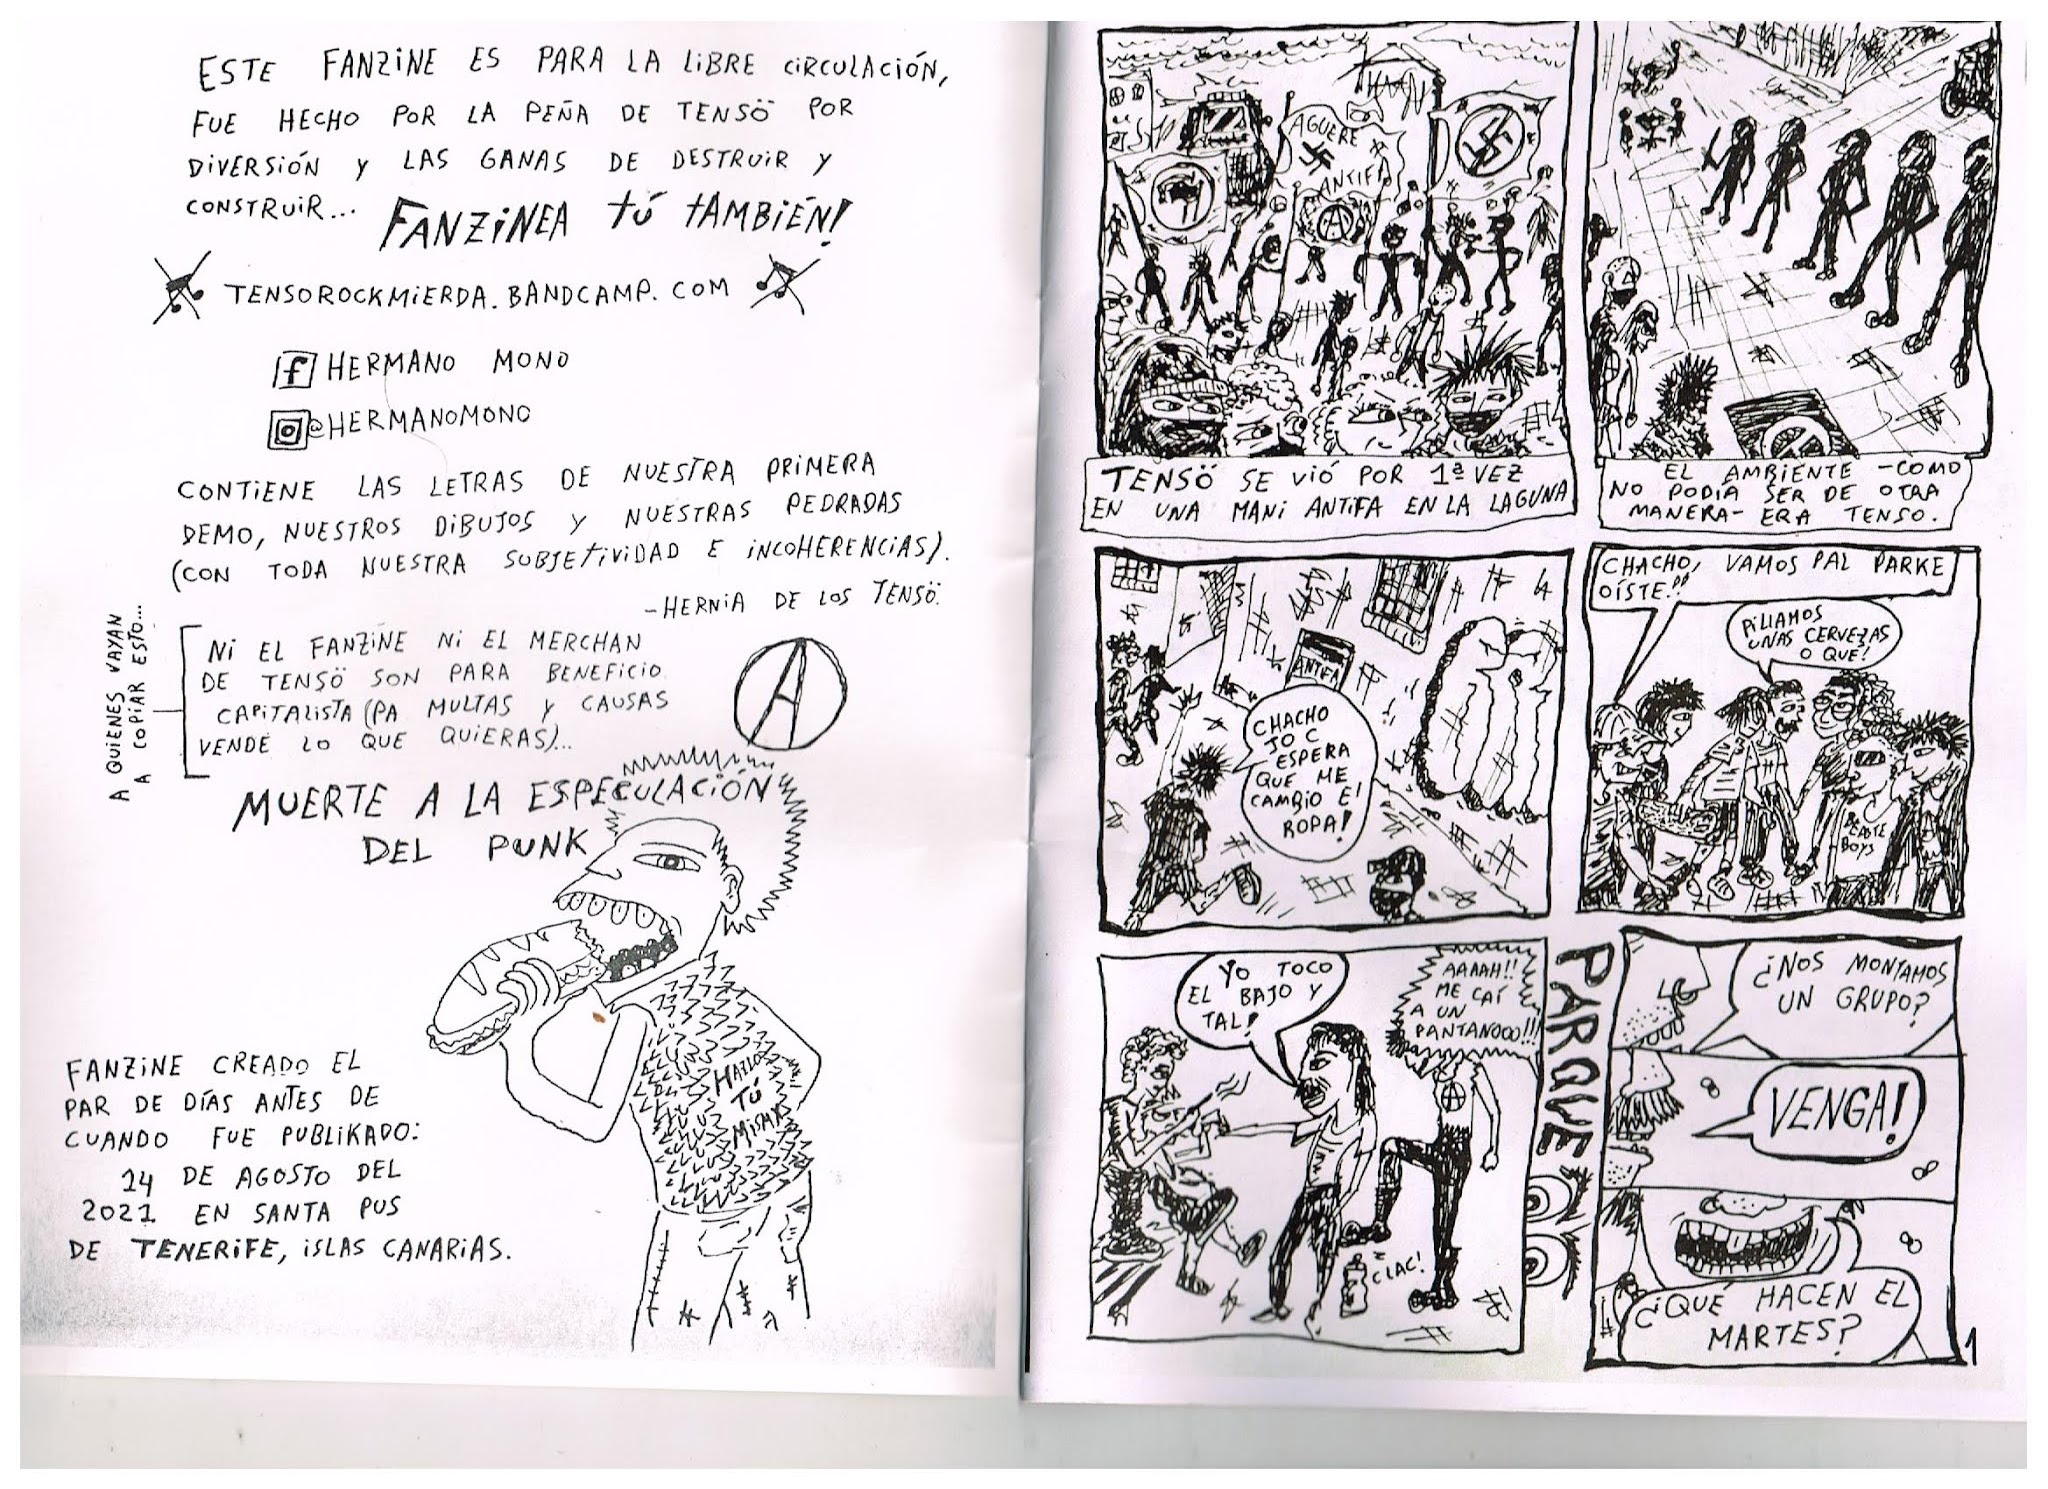 ESTE FANZINE ES PARA LA LIBRE CIRCULACIÓN,
FUE HECHO POR LA PEÑA DE TENSÖ POR
DIVERSIÓN Y LAS GANAS DE DESTRUIR Y
CONSTRUIR...
FANZINEA TÚ TAMBIÉN!
TENSOROCKMIERDA.BANDCAMP.COM
f HERMANO MONO
@HERMANOMONO
CONTIENE LAS LETRAS DE NUESTRA PRIMERA
DEMO, NUESTROS DIBUJOS Y NUESTRAS PEDRADAS
(CON TODA NUESTRA SUBJETIVIDAD E INCOHERENCIAS).
-HERNIA DE LOS TENSÖ.
A QUIENES VAYAN
A COPIAR ESTO...
NI EL FANZINE NI EL MERCHAN
DE TENSÖ SON PARA BENEFICIO
CAPITALISTA (PA MULTAS Y CAUSAS
VENDE LO QUE QUIERAS)...
A
MUERTE A LA ESPECULACIÓN
DEL PUNK
HAZLO
TÚ
MISMX
FANZINE CREADO EL
PAR DE DÍAS ANTES DE
CUANDO FUE PUBLIKADO:
14 DE AGOSTO DEL
2021 EN SANTA PUS
DE TENERIFE, ISLAS CANARIAS.
AGUERE
ANTIFA
TENSÖ SE VIÓ POR 1ª VEZ
EN UNA MANI ANTIFA EN LA LAGUNA
EL AMBIENTE -COMO
NO PODÍA SER DE OTRA
MANERA- ERA TENSO.
ANTIFA
CHACHO
JO C
ESPERA
QUE ME
CAMBIO E'
ROPA!
CHACHO, VAMOS PAL PARKE
OÍSTE!!
PILIAMOS
UNAS CERVEZAS
O QUE!
BEASTIE
BOYS
YO TOCO
EL BAJO Y
TAL!
AAAAH!!
ME CAÍ
A UN
PANTANOOO!!!
CLAC!
PARQUE
¿NOS MONTAMOS
UN GRUPO?
VENGA!
¿QUÉ HACEN EL
MARTES?
1